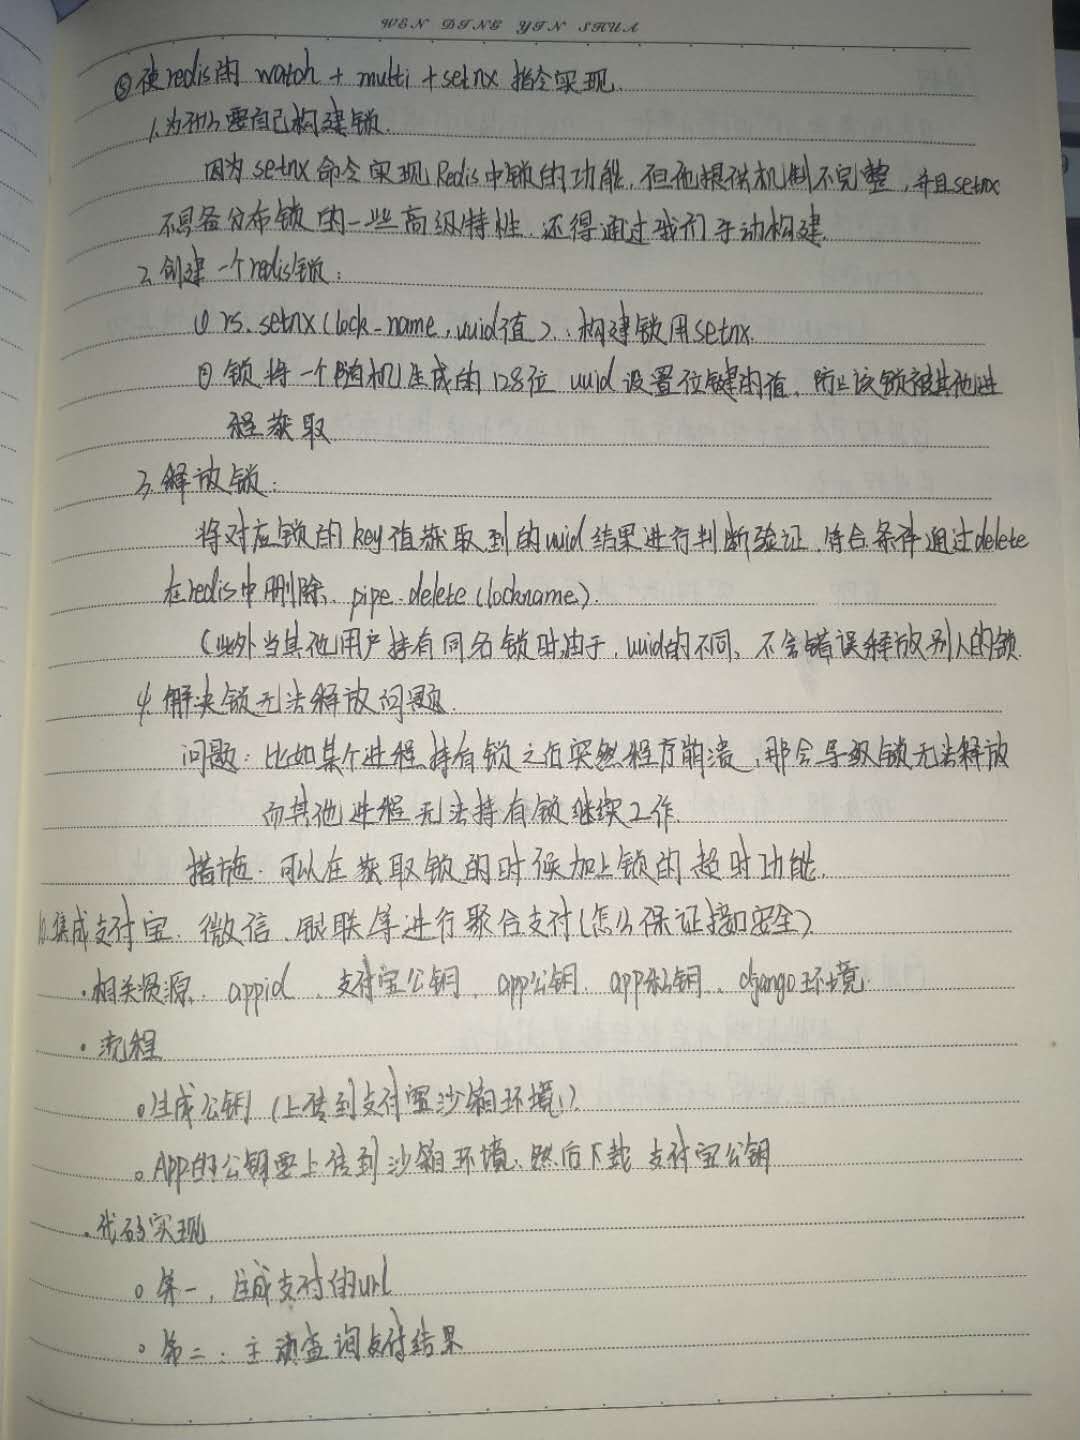 WEN DING YIN SHUA
⑤使redis用 watch + multi + setnx 指令实现.
1.为什么要自己构建锁.
因为 setnx 命令实现 Redis中锁的功能,但他提供机制不完整,并且setnx
不具备分布锁的一些高级特性.还得通过我们手动构建.
2.创建一个redis锁:
① rs.setnx(lock-name,uuid值).构建锁用setnx.
② 锁将一个随机生成的128位 uuid 设置位键的值,防止该锁被其他进
程获取
3.解放锁:
将对应锁的key值获取到的uuid结果进行判断验证.符合条件通过delete
在redis中删除. pipe.delete(lockname).
(此外当其他用户持有同名锁时,由于,uuid的不同,不会错误释放别人的锁.
4.解决锁无法释放问题.
问题:比如某个进程持有锁之后突然程序崩溃,那会导致锁无法释放
而其他进程无法持有锁继续工作.
措施.可以在获取锁的时候加上锁的超时功能.
10.集成支付宝.微信.银联等进行聚合支付(怎么保证接口安全)
·相关资源. appid 、支付宝公钥、app公钥、app私钥、django环境.
·流程
。生成公钥 (上传到支付宝沙箱环境).
。App的公钥要上传到沙箱环境,然后下载支付宝公钥
·代码实现
。第一,生成支付的url
。第二.主动查询支付结果